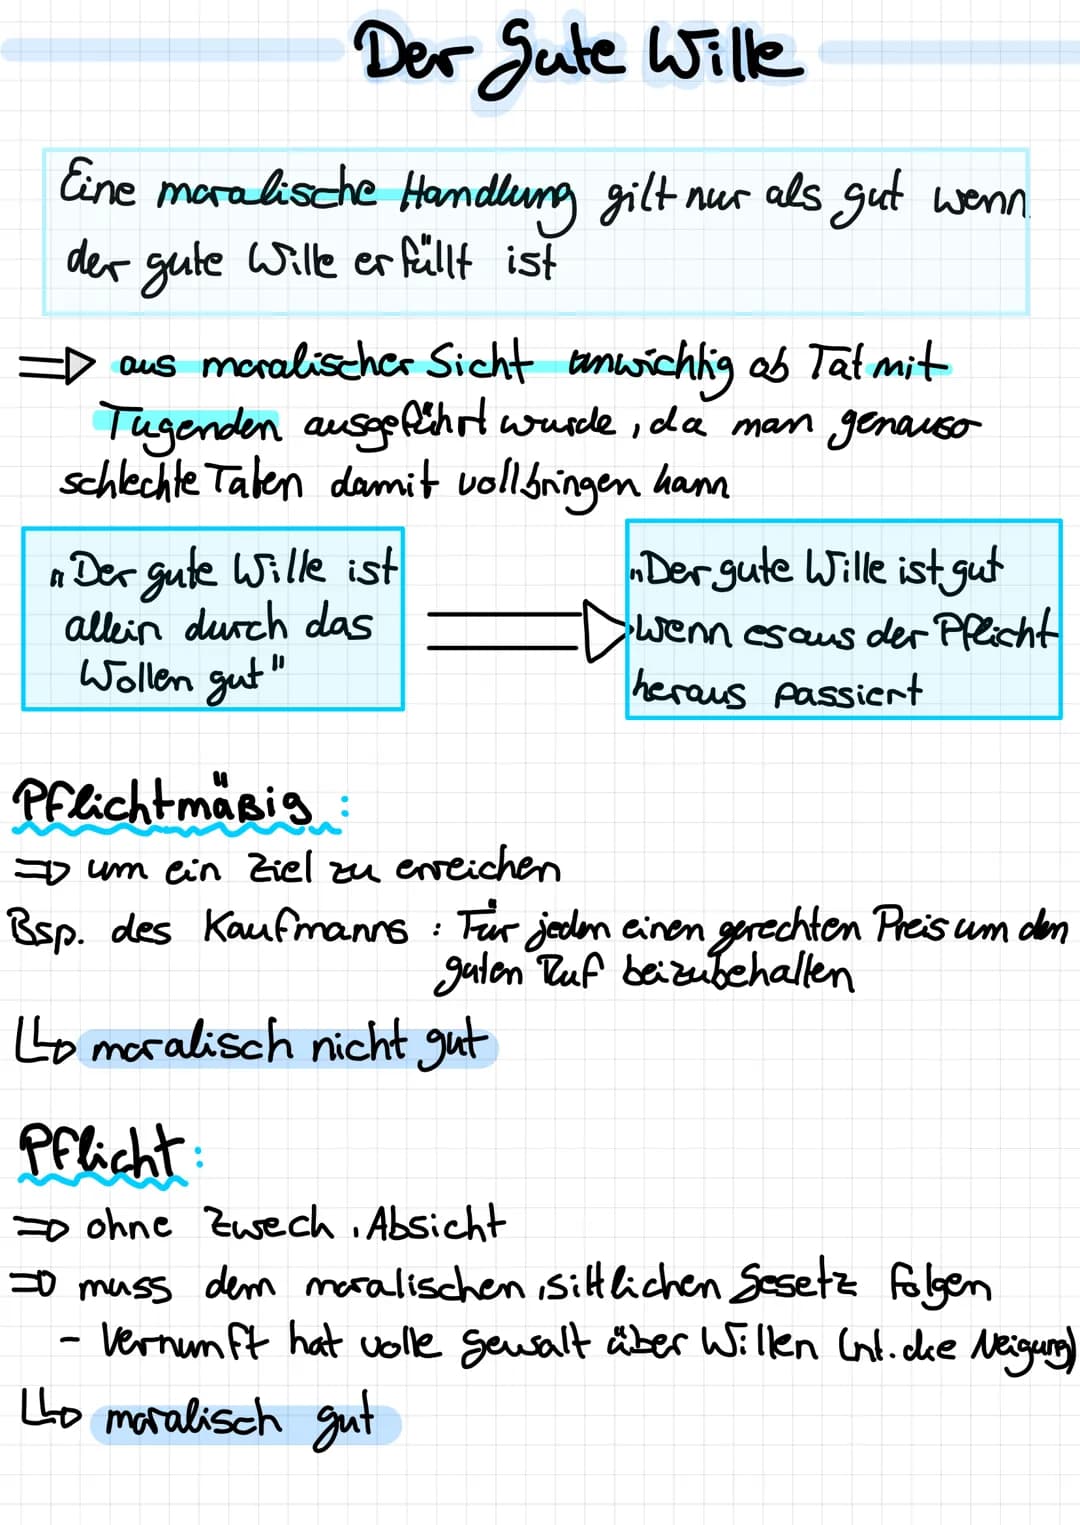 Der Gute Wille
Eine moralische Handlung gilt nur als gut wenn
der gute Wille erfüllt ist
⇒ aus moralischer Sicht unwichtig ob Tat mit
Tugenden ausgeführt wurde, da man genauso
schlechte Taten damit vollbringen kann
"Der gute Wille ist
allein durch das
Wollen gut"
"Der gute Wille ist gut
wenn es aus der Pflicht
heraus passiert
Pflichtmäßig:
⇒ um ein Ziel zu erreichen
Bsp. des Kaufmanns: Für jeden einen gerechten Preis um den
guten Ruf beizubehalten
↳ moralisch nicht gut
Pflicht:
⇒ ohne Zweck, Absicht
⇒ muss dem moralischen, sittlichen Gesetz folgen
- Vernunft hat volle Gewalt über Willen (nt. die Neigung)
↳ moralisch gut